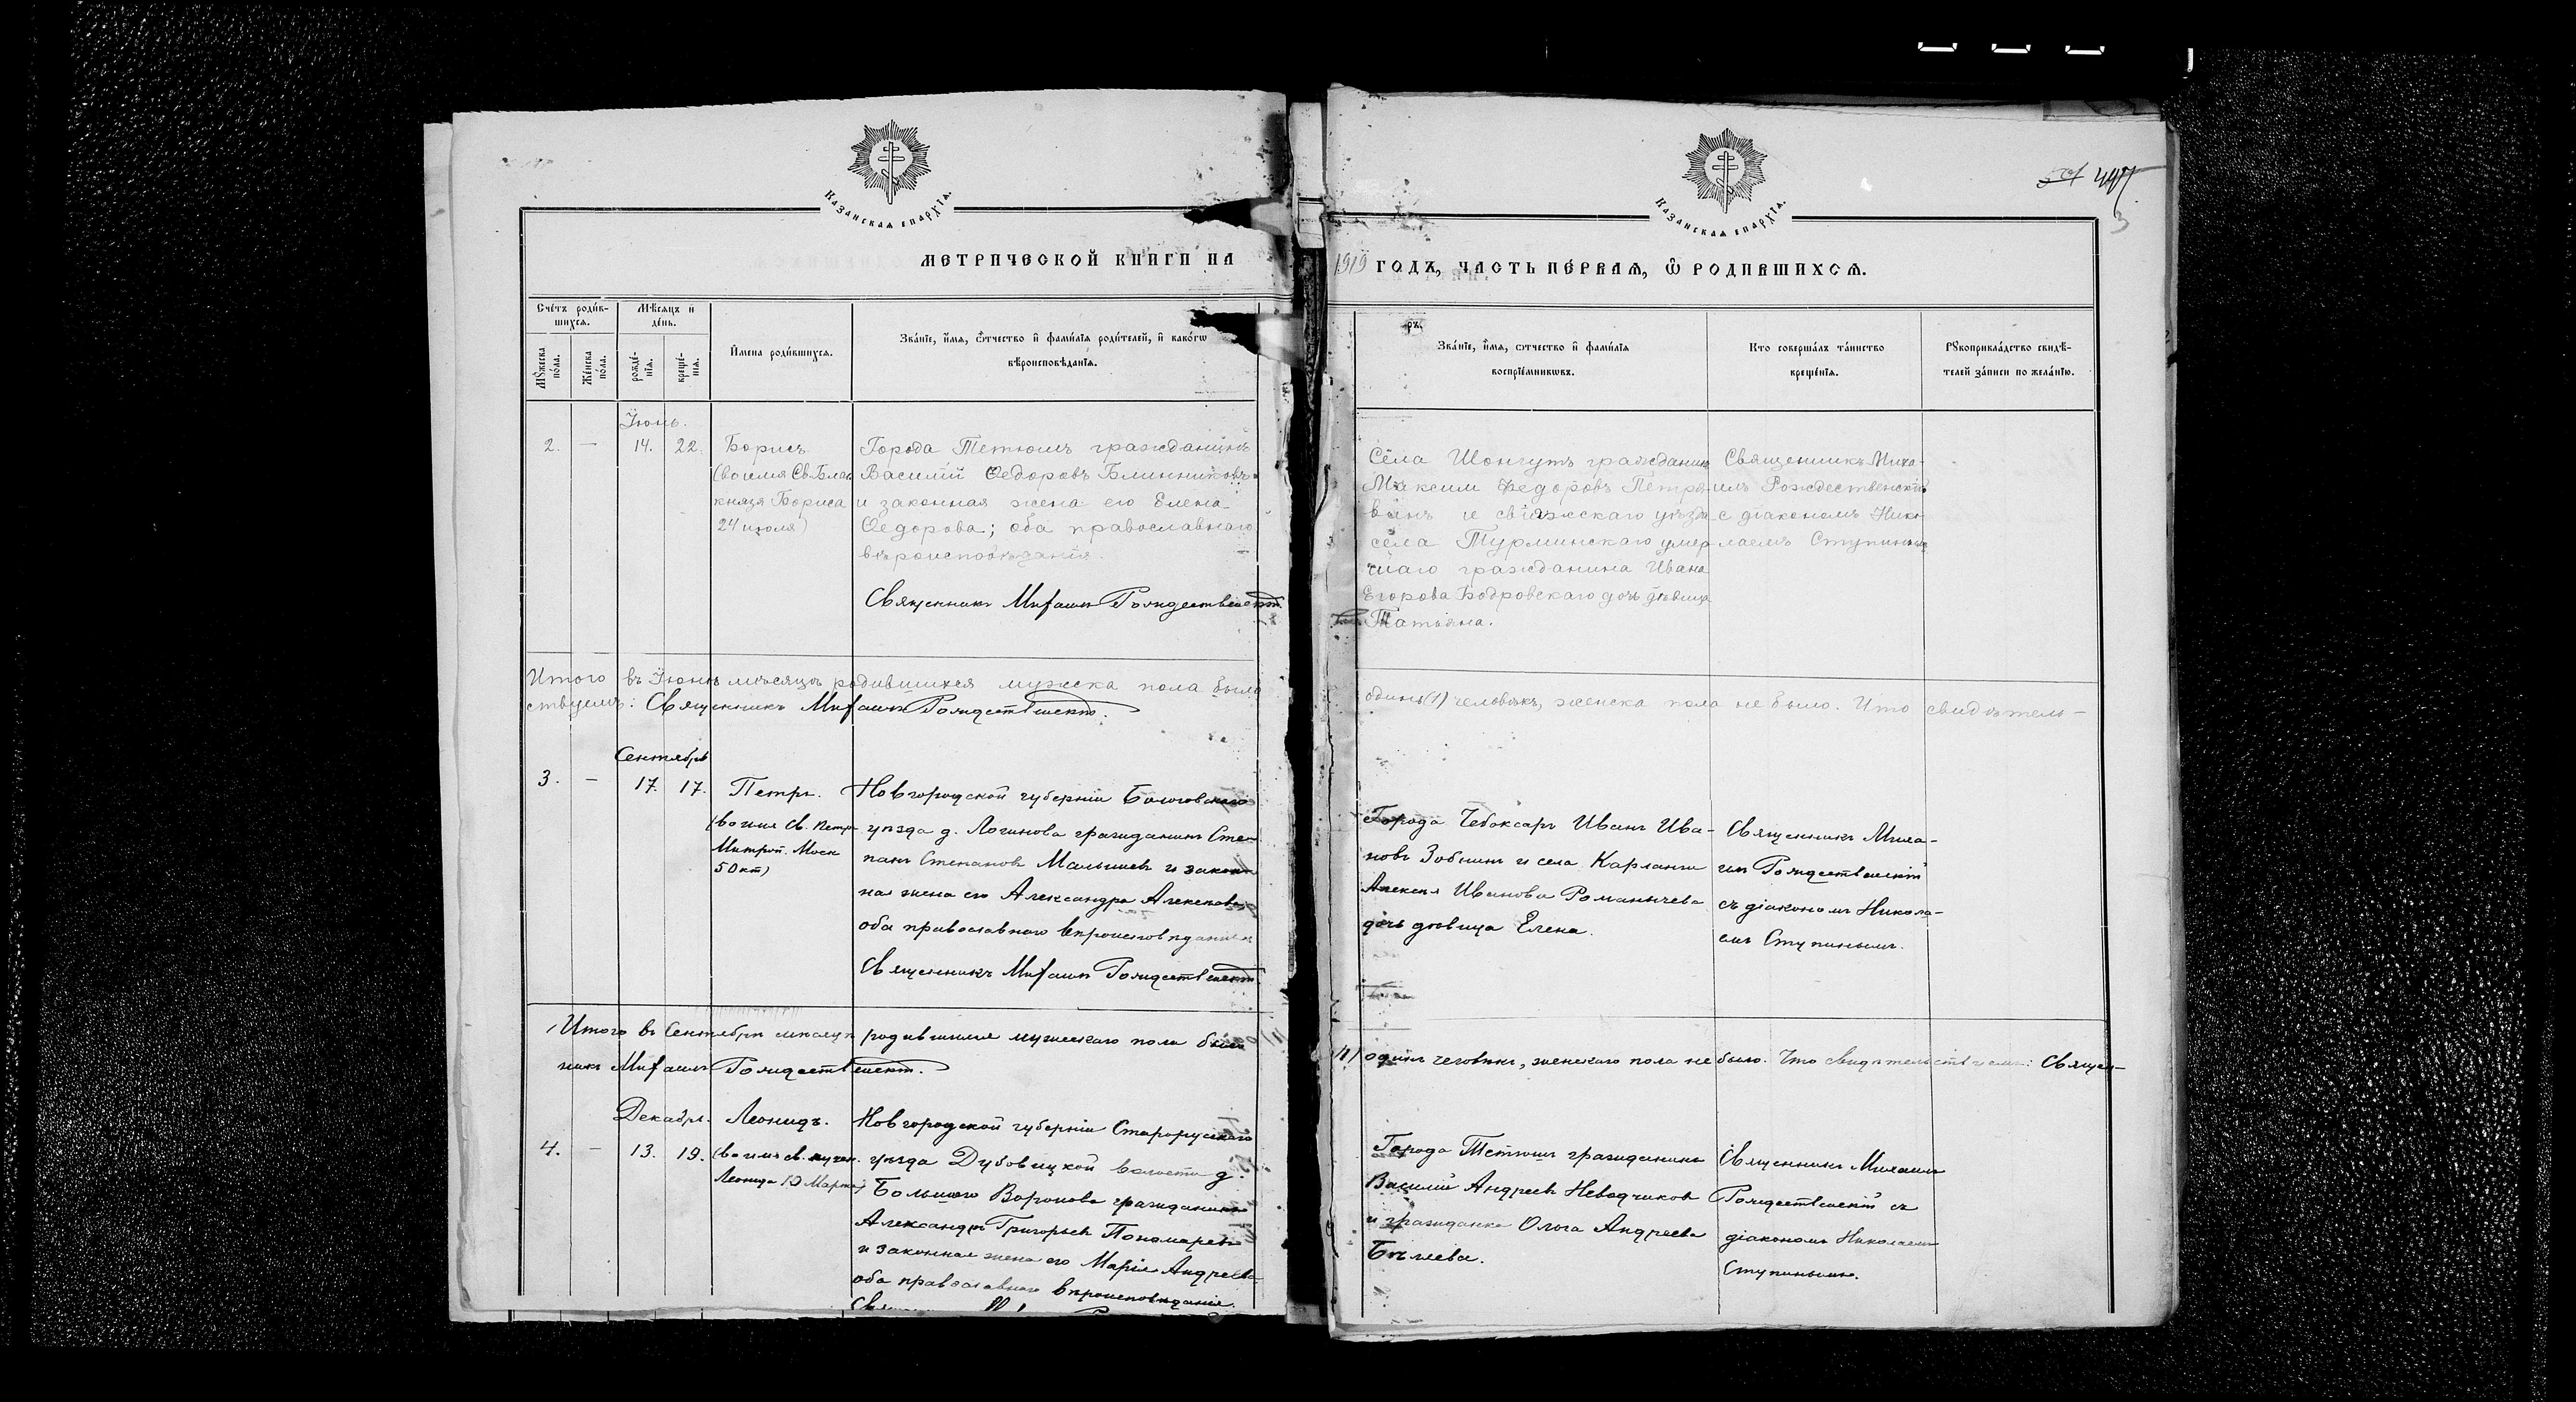 Казанская епархїѧ.
Казанская епархїѧ.
447
3
МЕТРИЧЕСКОЙ КНИГИ НА 1919 ГОДЪ, ЧАСТЬ ПЕ́РВАѦ, Ѽ РОДИВШИХСѦ.
Счéтъ роди́в-
шихсѧ.
Мꙋ́жеска пóла.
Жéнска пóла.
Мѣ́сяцъ и
дéнь.
рождé-
нїѧ.
крещé-
нїѧ.
И́мена роди́вшихсѧ.
Звáнїе, и́мѧ, ѻ́тчество и҆ фами́лїѧ роди́телей, и҆ какóгѡ
вѣроисповѣ́данїѧ.
Звáнїе, и́мѧ, ѻтчество и҆ фами́лїѧ
воспрїéмникѡвъ.
Кто совершáлъ тáинство
крещéнїѧ.
Рꙋкоприклáдство свидѣ́-
телей зáписи по желáнїю.
Іюнь.
2. — 14. 22. Борисъ
(во имя Св. Благ.
князя Бориса
24 іюля)
Города Тетюшъ гражданинъ
Василій Ѳедоровъ Блинниковъ
и законная жена его Елена
Ѳедорова; оба православнаго
вѣроисповѣданія.
Священникъ Михаилъ Рождественскій
Села Шонгутъ гражданинъ
Максим Федоровъ Петро-
вынъ и свіяжскаго уѣзда
села Турминскаго умер-
шаго гражданина Ивана
Егорова Бодровскаго дочь дѣвица
Татьяна.
Священникъ Миха-
илъ Рождественскій
с діакономъ Нико-
лаемъ Ступинымъ
Итого въ Іюнѣ мѣсяцѣ родившихся мужеска пола было один (1) человѣкъ, женска пола не было. Что свидѣтель-
ствуемъ: Священникъ Михаилъ Рождественскій.
Сентябрь
3. — 17. 17. Петръ.
(во имя Св. Петра
Митроп. Моск
5 Окт)
Новгородской губерніи
уѣзда д. Логинова гражданинъ Сте-
панъ Степановъ Малышевъ и закон-
ная жена его Александра Алексѣева
оба православнаго вѣроисповѣданія
Священникъ Михаилъ Рождественскій
Города Чебоксаръ Иванъ Ива-
новъ Зобнинъ и села Карланги
Алексѣя Иванова Романычева
дочь дѣвица Елена.
Священникъ Миха-
илъ Рождественскій
съ діакономъ Никола-
емъ Ступинымъ.
Итого въ Сентябрѣ мѣсяцѣ родившихся мужескаго пола было (1) одинъ человѣкъ, женскаго пола не было. Что свидѣтельствуемъ: Священ-
никъ Михаилъ Рождественскій.
Декабрь.
4. — 13. 19. Леонидъ.
(во имя св. мучен.
Леонида 10 Марта)
Новгородской губерніи Старорусскаго
уѣзда Дубовицкой волости д.
Большого Воронова гражданинъ
Александръ Григорьевъ Пономаревъ
и законная жена его Марія Андреева
оба православнаго вѣроисповѣданія.
Города Тетюшъ гражданинъ
Василій Андреевъ Неводчиковъ
и гражданка Ольга Андреева
Бѣляева.
Священникъ Михаилъ
Рождественскій съ
діакономъ Николаемъ
Ступинымъ.